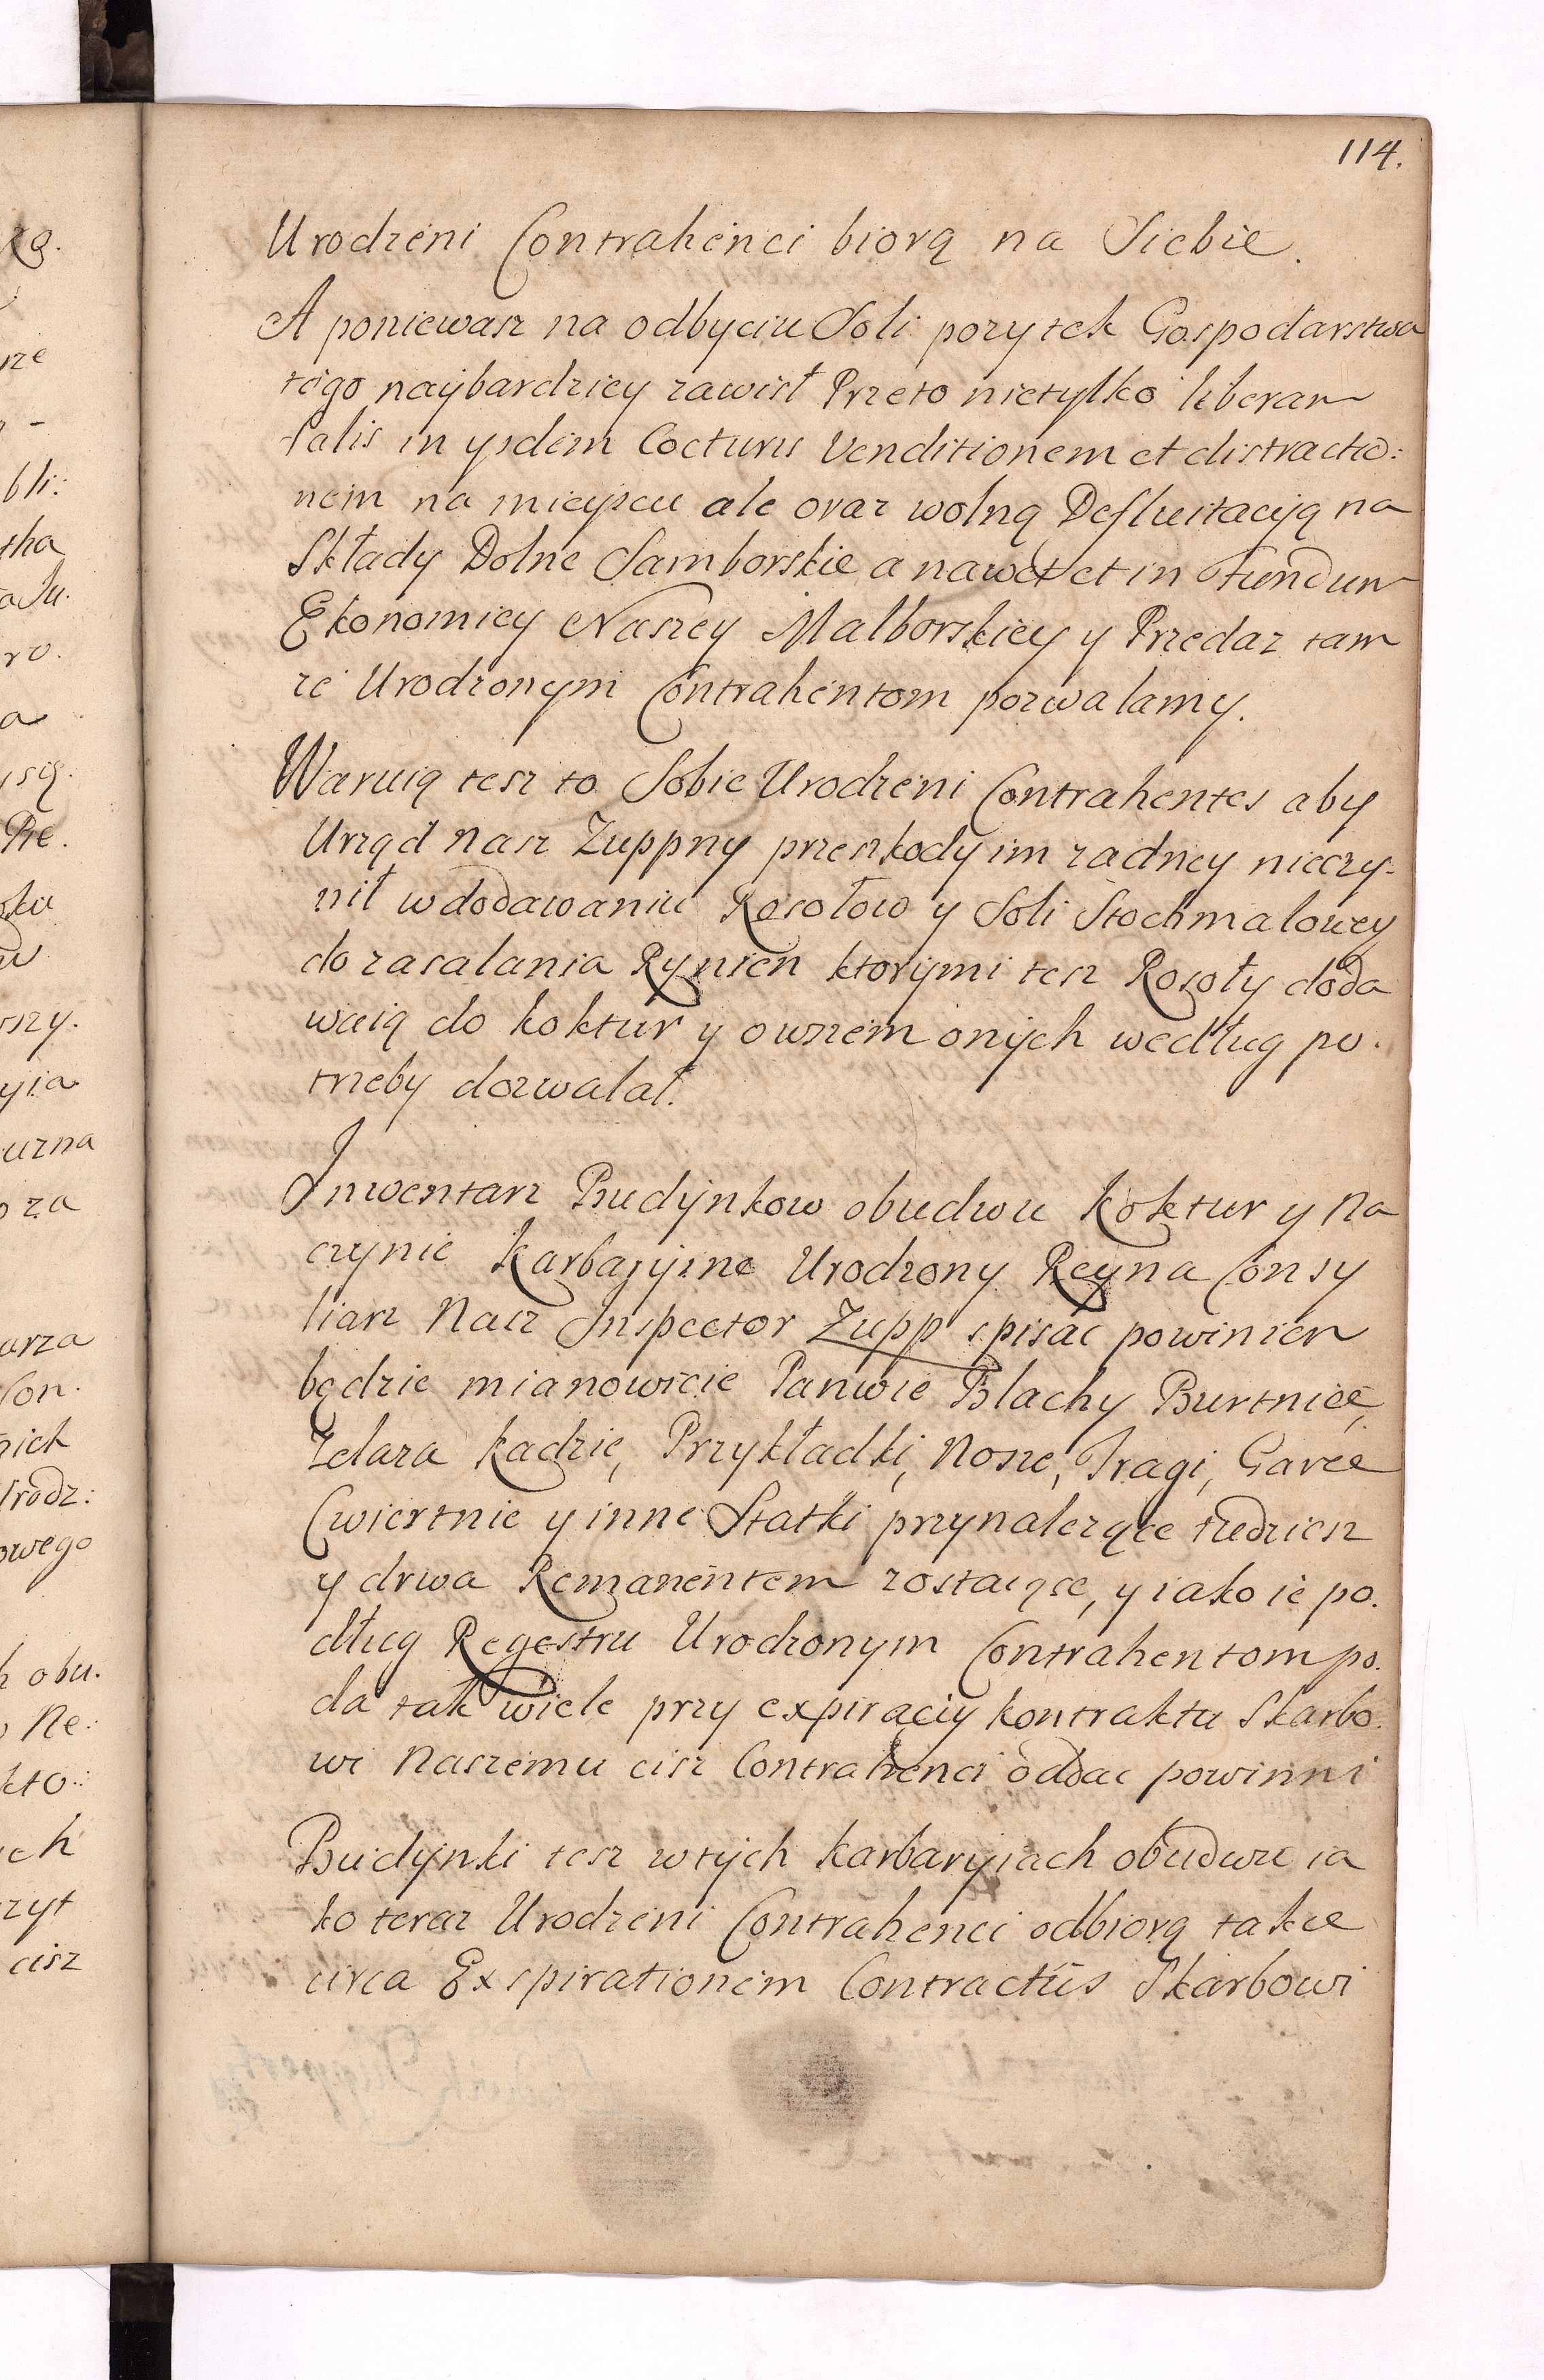 114.
Urodzeni Contrahenci biorą na Siebie.
A poniewasz na odbyciu Soli pozytek Gospodarstwa
tego naybardziey zawisł Przeto nietylko liberam
Salis in ysdem Cocturis Venditionem et distractio:
nem na mieyscu ale oraz wolną Defluitacyją na
Składy Dolne Samborskie a nawet et in Fundum
Ekonomiey Naszey Malborskiey y Przedaz tam
ze Urodzonym Contrahentom pozwalamy.
Waruią tesz to Sobie Urodzeni Contrahentes aby
Urząd nasz Zuppny przeszkody im zadney nieczy-
nił w dodawaniu Rosołow y Soli Stochmalowey
do zasalania Rynien ktorymi tesz Rosoły doda
waią do koktur y owszem onych według po.
trzeby dozwalał.
Inwentarz Budynkow obudwu Koktur y Na
czynie Karbaryine Urodzony Reyna Consy
liarz Nasz Inspector Zupp spisac powinien
będzie mianowicie Panwie Blachy Burtnice,
Zelaza Kadzie, Przykładki, Nosze, Tragi, Garce
Cwiertnie y inne Statki przynalezące tudziesz
y drwa Remanentem zostaiące, y iako ie po.
dług Regestru Urodzonym Contrahentom po.
da tak wiele przy expiraciy kontraktu Skarbo.
wi Naszemu cisz Contrahenci oddac powinni
Budynki tesz w tych Karbaryiach obudwu ia
ko teraz Urodzeni Contrahenci odbiorą takie
circa Exspirationem Contractus Skarbowi